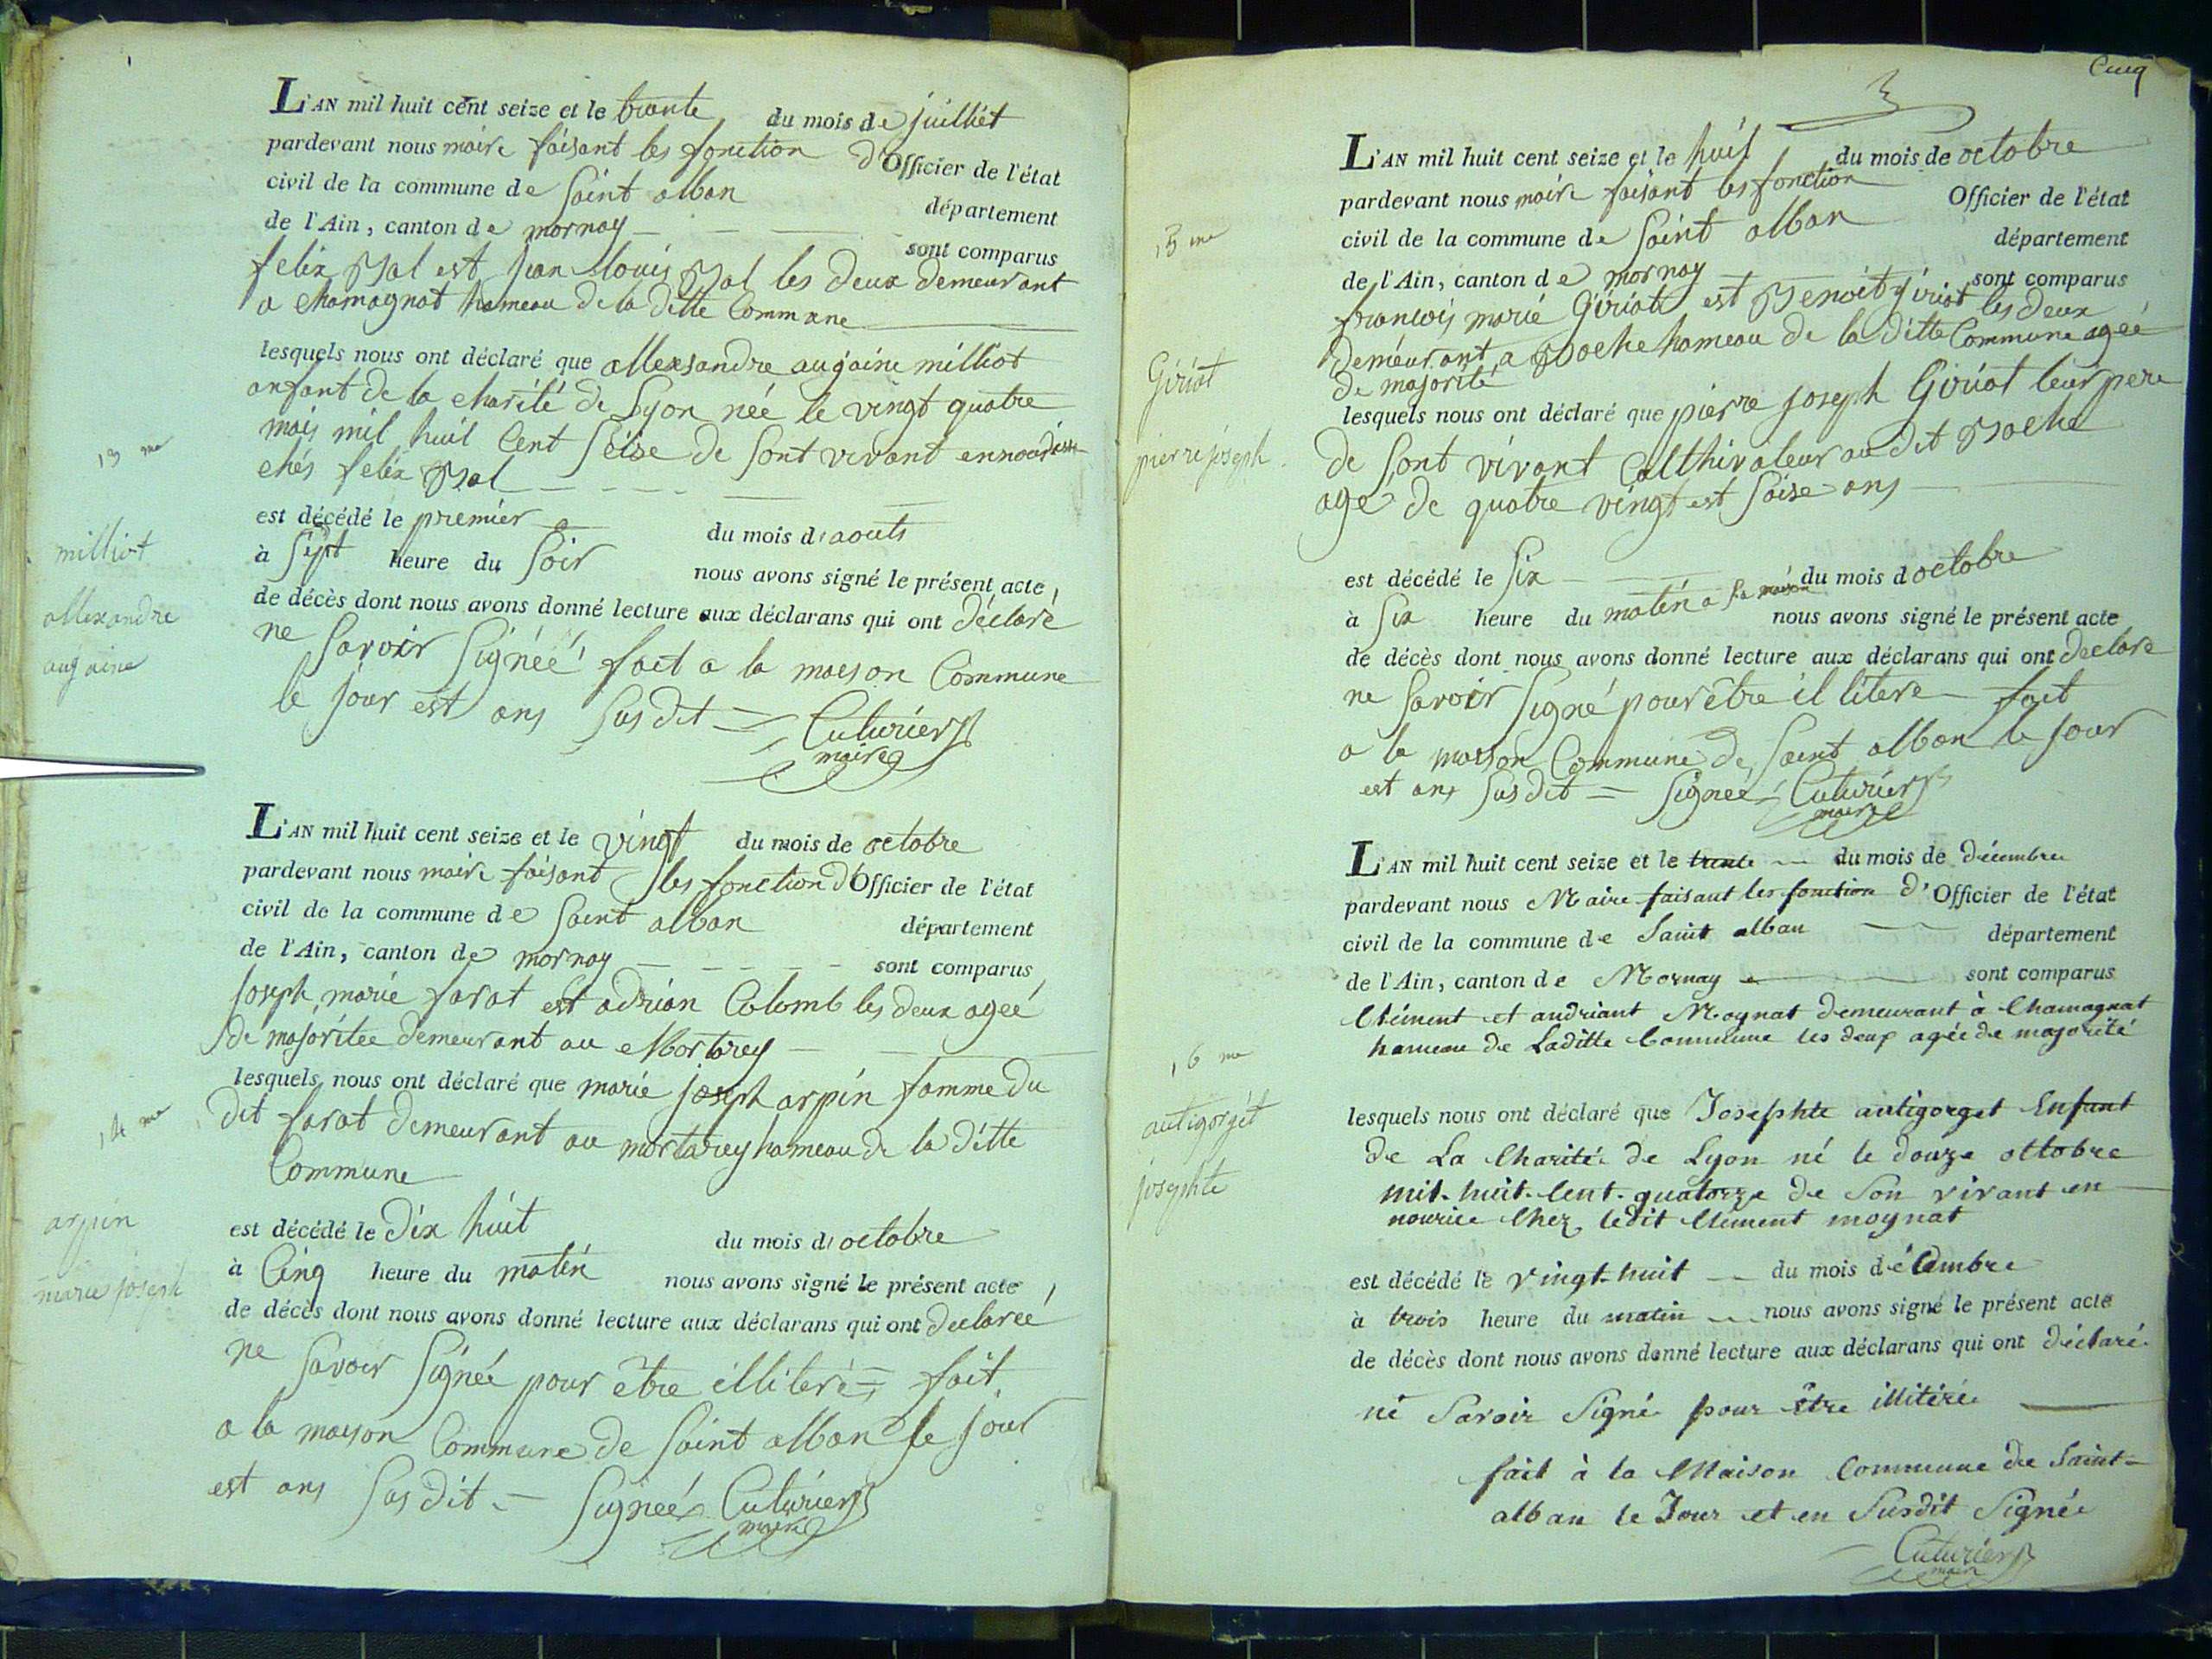 L'AN mil huit cent seize et le trante du mois de juilliét
pardevant nous maire faisant les fonction d'Officier de l'état
civil de la commune de Saint alban département
de l'Ain, canton de mornay sont comparus
felix est jean louis les deux demeurant
a Chamagnat hameau de la ditte Commune
lesquels nous ont déclaré que allexsandre augaine milliot
anfant de la charité de Lyon née le vingt quatre
mais mil huit Cent Seise de Sont vivant
chés felix
est décédé le premier du mois d'aouts
à Sept heure du Soir nous avons signé le présent acte,
de décès dont nous avons donné lecture aux déclarans qui ont déclaré
ne Savoir Signéé fait a la maison Commune
le jour est ans Susdit = Cuturier
maire
13 me
milliot
allexandre
augaine
L'AN mil huit cent seize et le vingt du mois de octobre
pardevant nous maire faisant les fonction d'Officier de l'état
civil de la commune de Saint alban département
de l'Ain, canton de mornay sont comparus
Joseph marie farat est adrian Colomb les deux ageé
de majoritee demeurant au Mortarey
lesquels nous ont déclaré que marie joseph arpin famme du
dit farat demeurant au mortarey hameau de la ditte
Commune
est décédé le dix huit du mois d'octobre
à Cinq heure du matin nous avons signé le présent acte,
de décès dont nous avons donné lecture aux déclarans qui ont declareé
ne Savoir Signée pour être illiteré = fait
a la maison Commune de Saint alban le jour
est ans Susdit = Signeé Cuturier
maire
14 me
arpin
marie joseph
Cinq
L'AN mil huit cent seize et le huit du mois de octobre
pardevant nous maire faisant les fonction Officier de l'état
civil de la commune de Saint alban département
de l'Ain, canton de mornay sont comparus
francois marie Giriat est Benoit giriat les deux
demeurant a hameau de la ditte Commune ageé
de majorité
lesquels nous ont déclaré que pierre joseph Giriat leur pere
de Sont vivant Calthivateur au dit
agé de quatre vingt est Saise ans
est décédé le Six du mois d'octobre
à Six heure du matin a Sa maison nous avons signé le présent acte
de décès dont nous avons donné lecture aux déclarans qui ont declare
ne Savoir Signé pour être il litere fait
a la maison Commune de Saint alban le jour
est ans Susdit = Signeé Cuturier
maire
15 me
Giriat
pierre joseph
L'AN mil huit cent seize et le trente du mois de décembre
pardevant nous Maire faisant les fonction d'Officier de l'état
civil de la commune de Saint alban département
de l'Ain, canton de Mornay sont comparus
Clément et andriant Moynat demeurant à Chamagnat
hameau de Laditte Commune les deux agée de majorité
lesquels nous ont déclaré que Josephte antigorget Enfant
de La Charité de Lyon né le douze ottobre
mil-huit-Cent-quatorze de Son vivant en
nourice Chez ledit Clément moynat
est décédé le vingt-huit du mois décembre
à trois heure du matin nous avons signé le présent acte
de décès dont nous avons donné lecture aux déclarans qui ont déclaré
né Savoir Signé pour être illitérée
fait à la Maison Commune de Saint-
alban le Jour et en Susdit Signée
Cuturier
maire
16 me
antigorgét
josephte